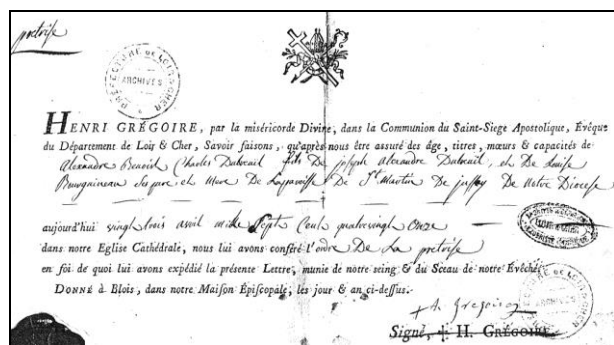 prêtrise
PRÉFECTURE DE LOIR & CHER
ARCHIVES
HENRI GRÉGOIRE, par la miséricorde Divine, dans la Communion du Saint-Siege Apostolique, Évêque
du Département de Loir & Cher, Savoir faisons, qu'après nous être assuré des âge, titres, mœurs & capacités de
Alexandre Benoit Charles Dubreuil fils De joseph Alexandre Dubreuil, et De Louise
ses pere et mere De La De St Martin De De Notre Diocese
aujourd'hui vingt trois avril mille Sept Cent quatrevingt Onze
dans notre Eglise Cathédrale, nous lui avons conféré l'ordre De La pretrise
en foi de quoi lui avons expédié la présente Lettre, munie de notre seing & du Sceau de notre Évêché
DONNÉ à Blois, dans notre Maison Épiscopale, les jour & an ci-dessus.
+ H. Gregoire
Signé, + H. GRÉGOIRE
ARCHIVES